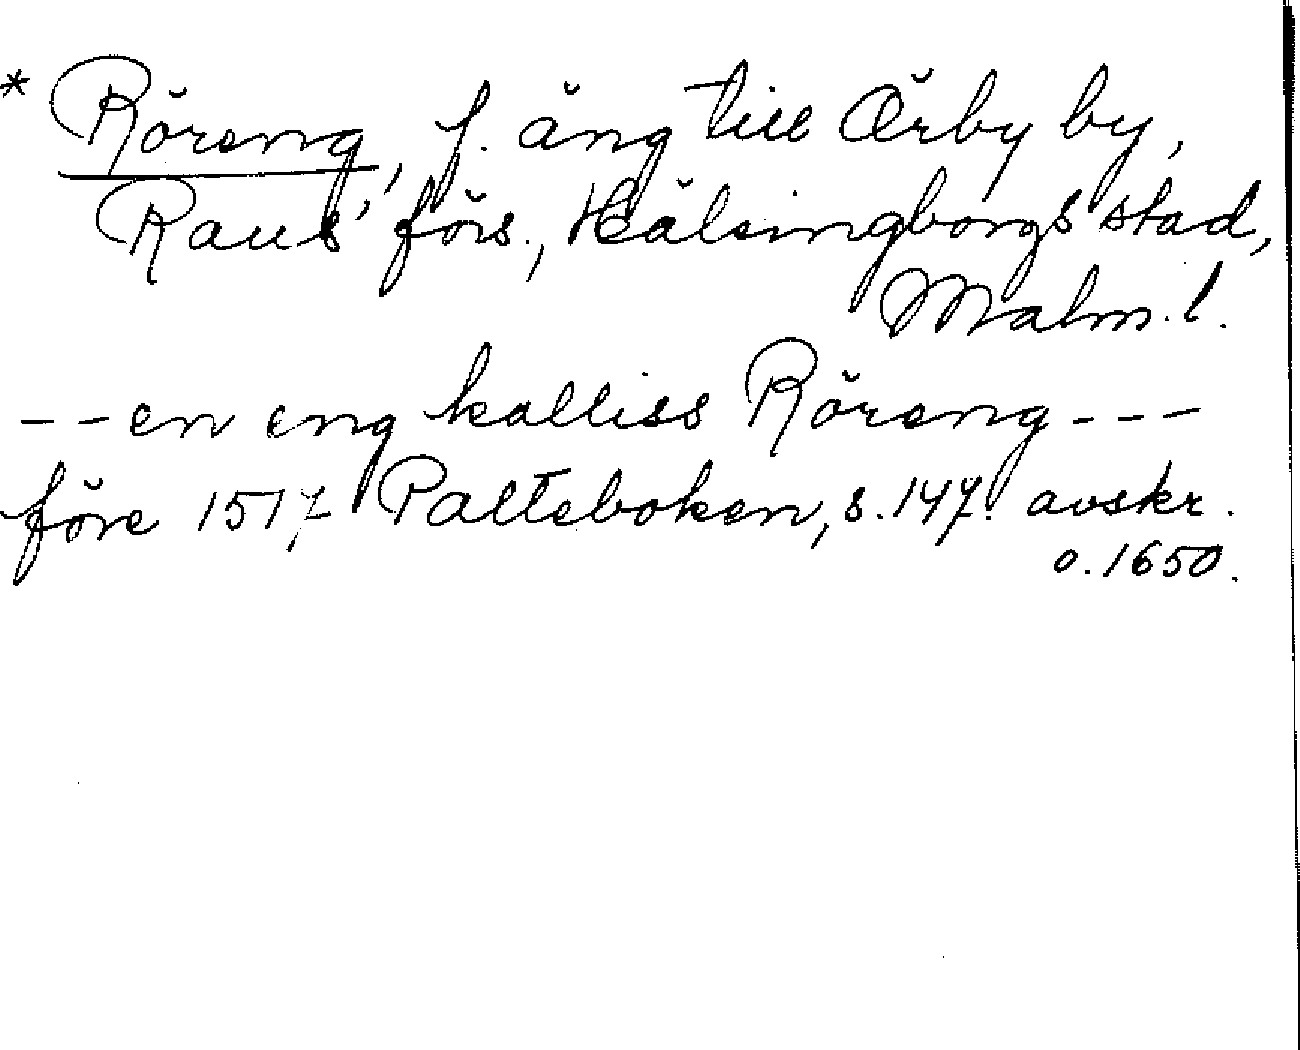 * Röreng, f. äng till Örby by,
Raus' förs., Hälsingborgs stad,
Malm. l.
-- en eng kalliss Röreng ---
före 1517 Palteboken, s. 147. avskr.
o. 1650.